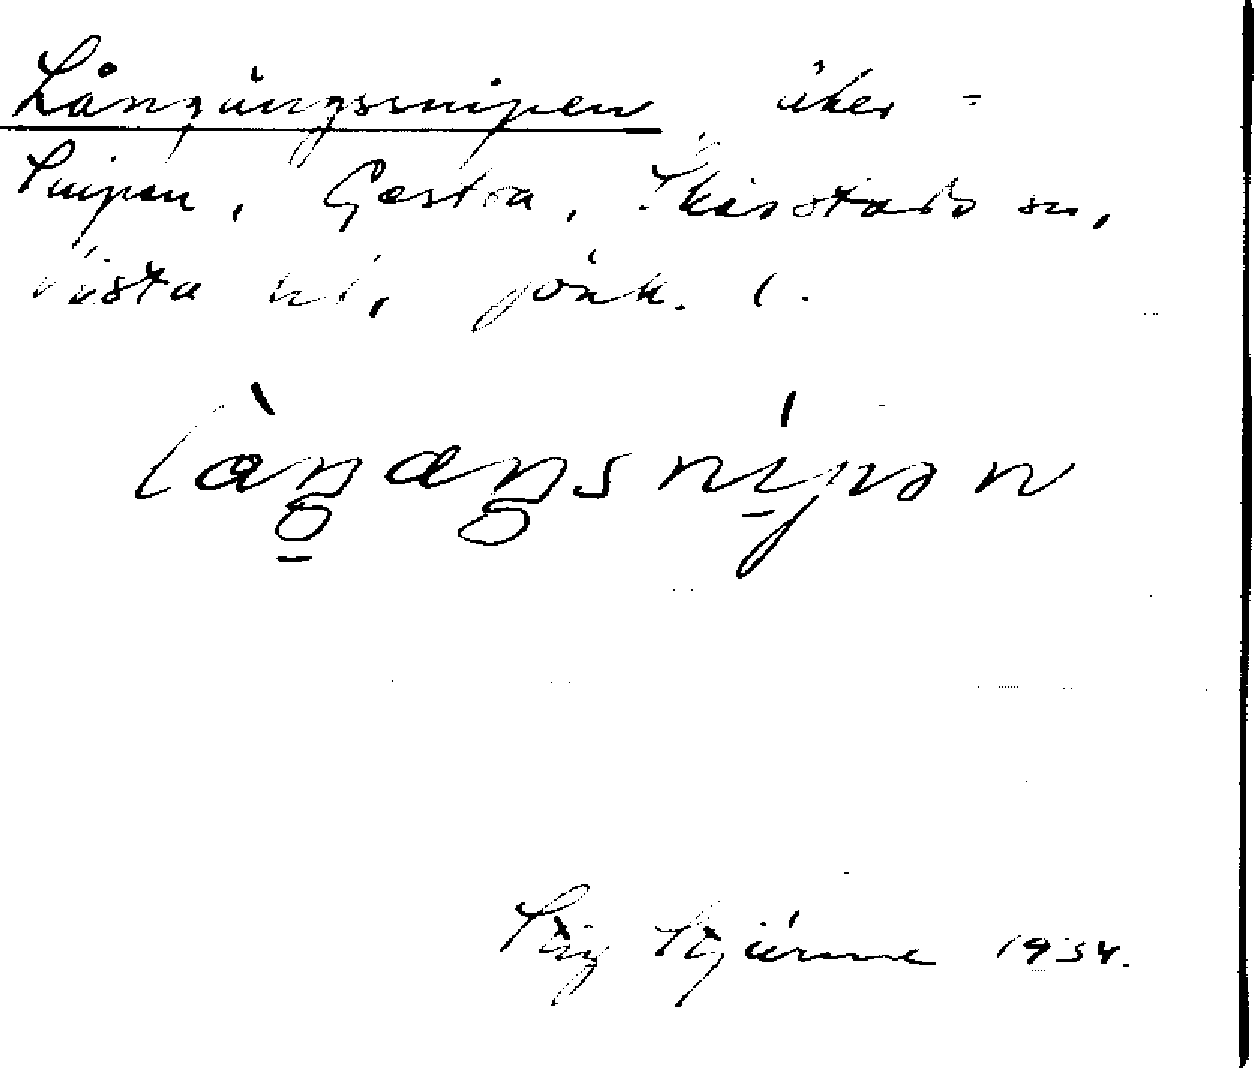 Långängssnipen, åker =
Snipen, Gestra, Skärstads sn,
Vista hd, Jönk. l.
làŋæŋsnípən
Stig Stjärne 1934.